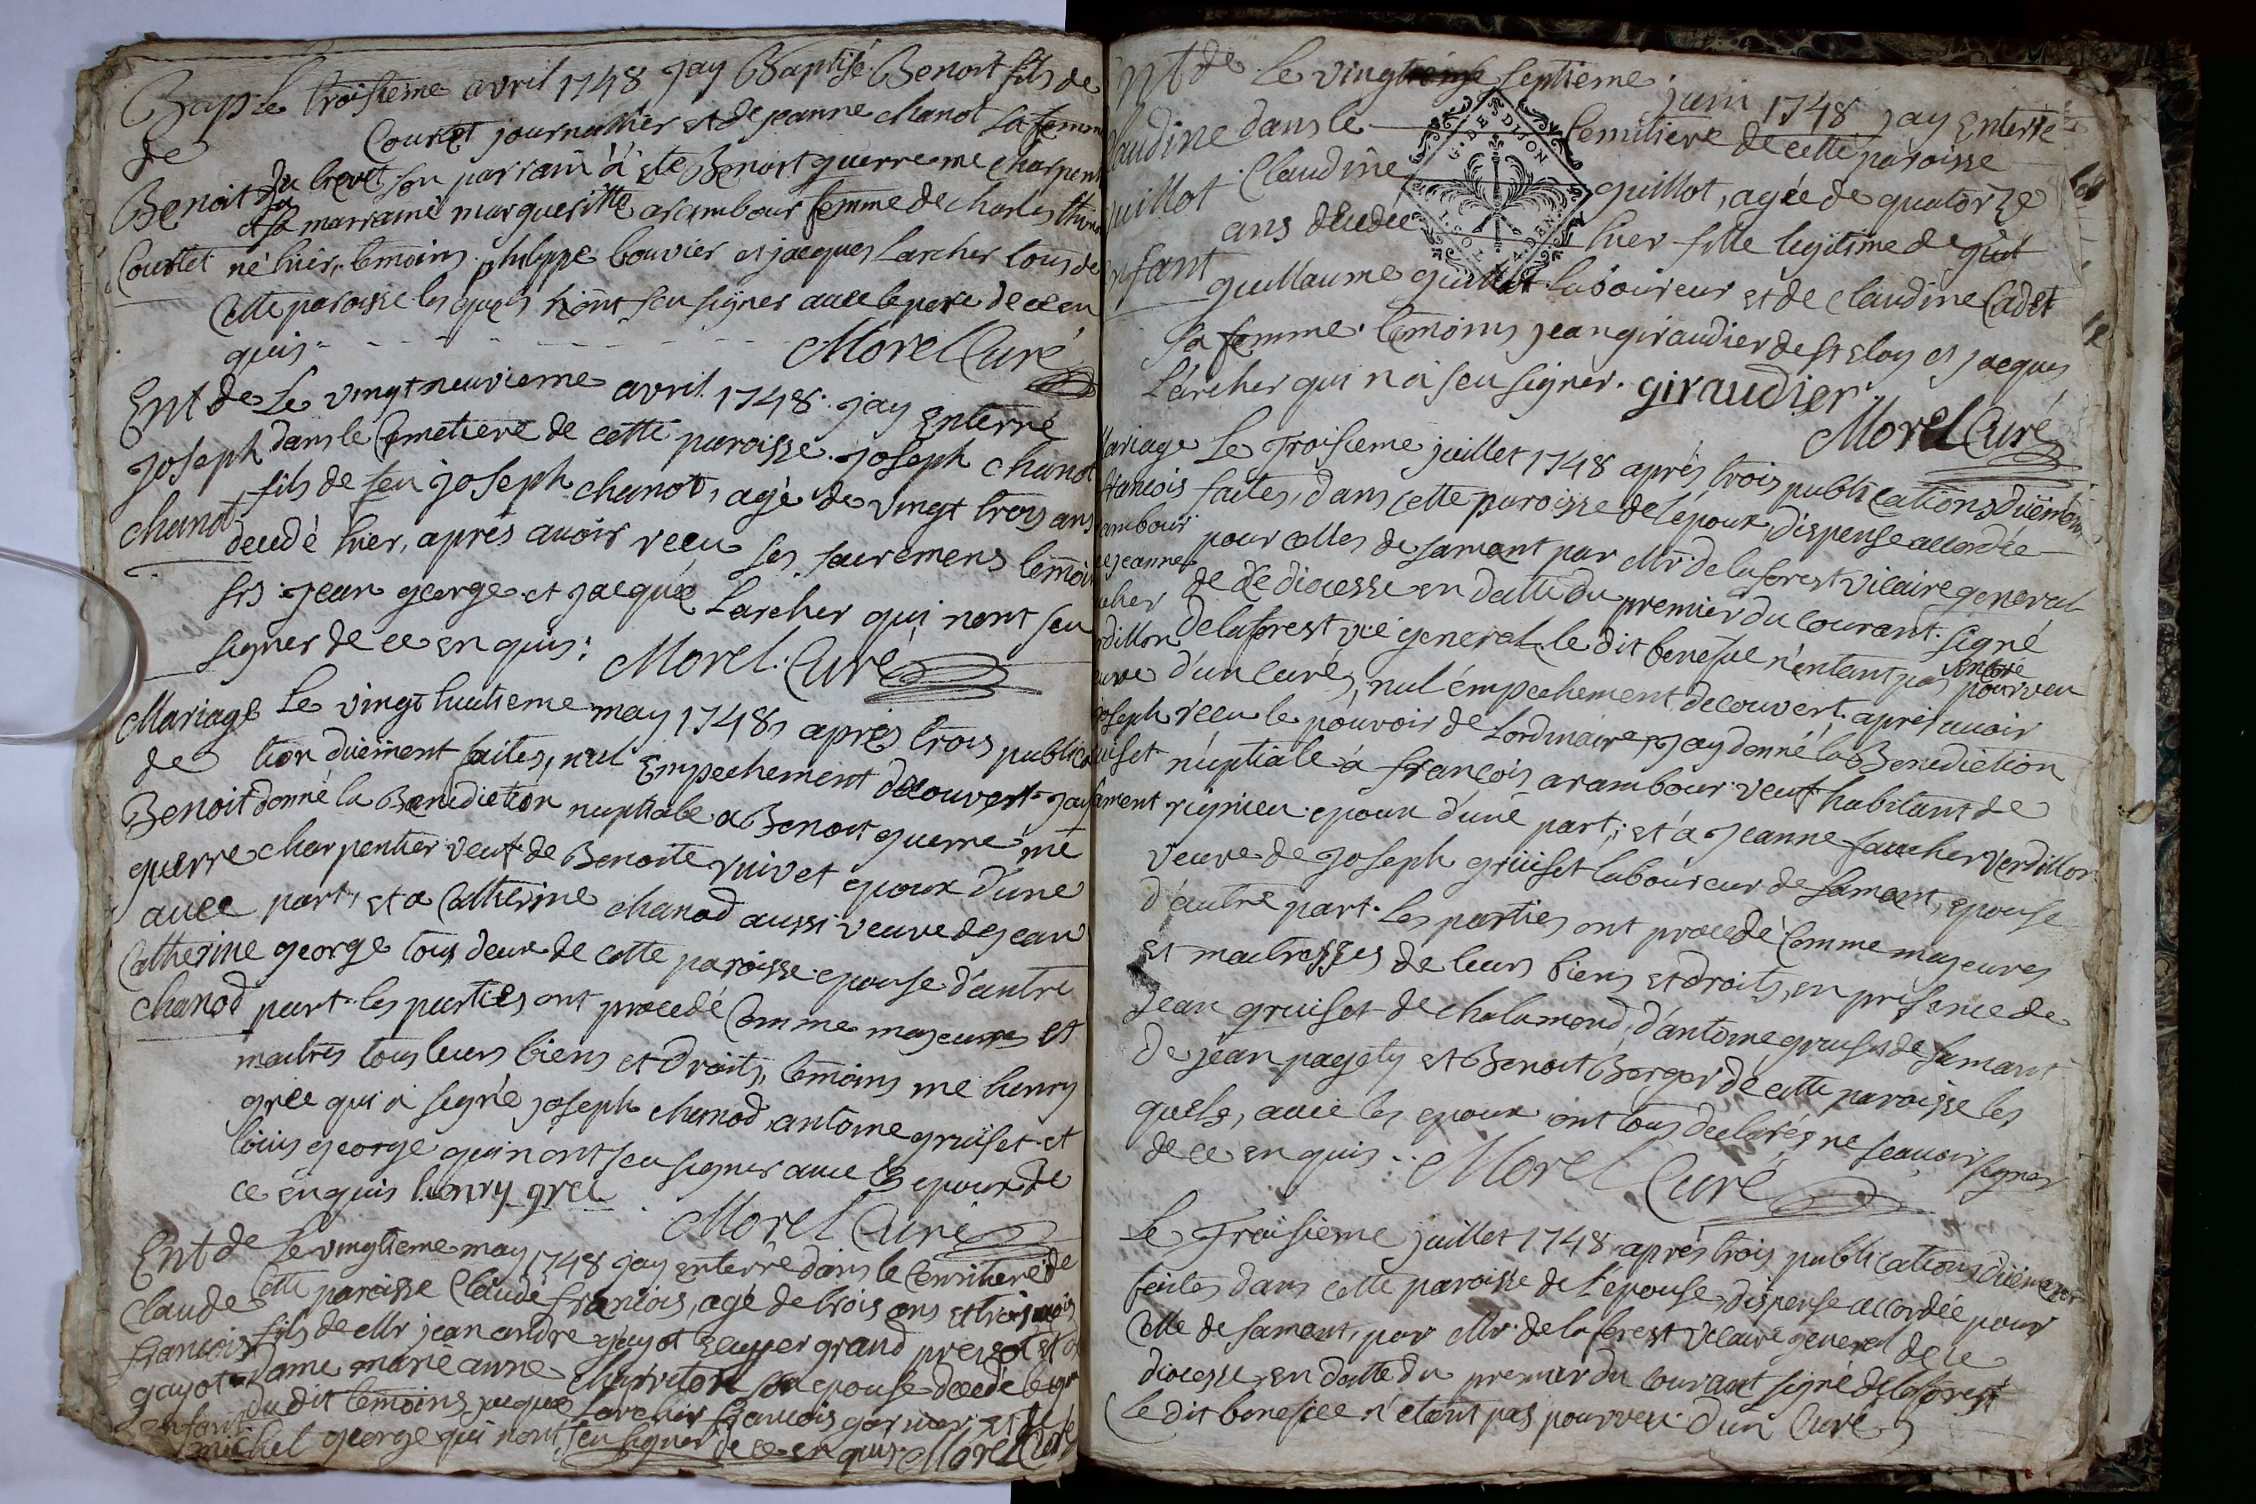 Bap: Le troisieme avril 1748 jay Baptisé Benoit fils de
de Courtet journallier et de jeanne chanot sa femme
Benoit du brevet son parrain à eté Benoit guerre me charpent
et sa marraine margueritte arambour femme de charles
Courtet né hier, temoins philippe bouvier et jacques Larcher tous de
Cette paroisse les quels n'ont seu signer avec le pere de ce en
quis - - - - - - Morel Curé
Ent de Le vingt neuvieme avril 1748 jay Enterré
joseph dans le Cemetiere de cette paroisse joseph chanot
chanot fils de feu joseph chanot, agé de vingt trois ans
decedé hier, aprés avoir receu ses sacremens temoins
srs jean george et jacque Larcher qui nont seu
signer de ce enquis: Morel Curé
Mariage Le vingt huitieme may 1748 aprés trois publica
de tion düement faites, nul Empechement découvert jay
Benoit donné la Benediction nuptiale a Benoit guerre me
guerre charpentier veuf de Benoite vuivet epoux d'une
avec part, et a Catherine chanod aussi veuve de jean
Catherine george tous deux de cette paroisse epouse d'autre
chanod part les parties ont procedé Comme majeures et
maitres tous leurs biens et droits, temoins me henry
gree qui à signé joseph chanod, antoine gruiset et
loüis george qui n'ont seu signer avec les epoux de
ce enquis henry gree
Morel Curé
Ent de Le vingtieme may 1748 jay enterré dans le Cemitiere de
claude cette paroisse Claude françois, agé de trois ans et trois mois
françois fils de Mr jean andre gayot Ecuyer grand prevost et de
gayot Dame marie anne charreton son epouse decedé le jour
enfant du dit temoins jacque Larcher françois garnier et de
michel george qui nont seu signer de ce enquis Morel Curé
Ent de Le vingt septieme juin 1748 jay Enterré
Claudine dans le Cemitiere de cette paroisse
guillot Claudine guillot, agée de quatorze
G. DE DIJON
ans decedée hier fille legitime de
enfant guillaume guillot laboureur et de Claudine Cadet
sa femme. temoins jean giraudier de st eloy et jacques
Larcher qui n'a seu signer. giraudier.
Morel Curé
Mariage Le Troisieme juillet 1748 aprés trois publications düement
françois faites, dans cette paroisse de l'époux, dispense accordée
arambour pour celles de samant par Mr. de la forest vicaire general
de jeanne de ce diocesse en datte du premier du courant. signé
faucher delaforest vic general. le dit benefice n'entant pas encore pourveu
verdillon
veuve d'un curé, nul émpechement decouvert. aprés avoir
joseph reçeu le pouvoir de Lordinaire, jay donné la Benediction
gruiset nuptiale à françois arambour veuf habitant de
samant rignieu epoux d'une part; et a jeanne faucher verdillon
veuve de joseph grüiset laboureur de samant, epouse
d'autre part. les parties ont procedé Comme majeures
et maitresses de leurs biens et droits, en presence de
jean gruiset de chalamond, d'antoine gruiset de samant
de jean pagety et Benoit Berger de cette paroisse les
quels, avec les epoux ont tous declarés ne scavoir signer
de ce enquis: Morel Curé
Le Troisieme juillet 1748 aprés trois publications düement
faites dans cette paroisse de l'épouse, dispense accordée pour
Celle de samant, par Mr. de la forest vicaire general de ce
diocesse, en datte du premier du courant signé delaforest
Le dit benefice n'étant pas pourveu d'un Curé